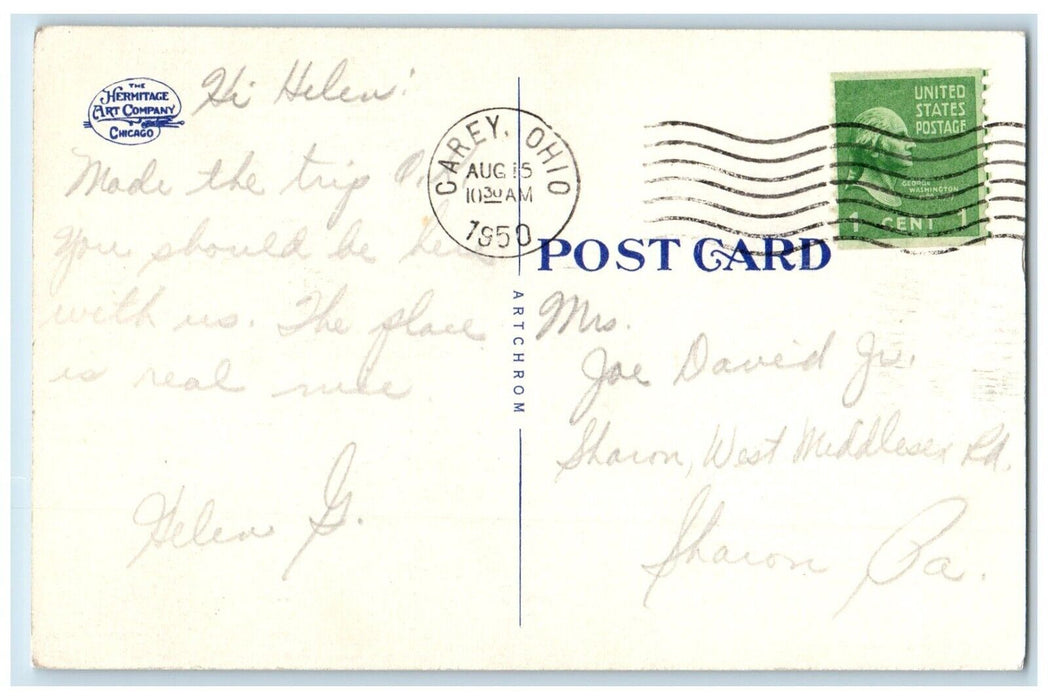 THE
HERMITAGE
ART COMPANY
CHICAGO
Hi Helen!
Made the trip
you should be here
with us. The place
is real nice.
Helen G.
CAREY, OHIO
AUG 15
10 30 AM
1950
UNITED
STATES
POSTAGE
GEORGE
WASHINGTON
1 CENT 1
POST CARD
ARTCHROM
Mrs.
Joe David Jr.
Sharon, West Middlesex Rd.
Sharon Pa.